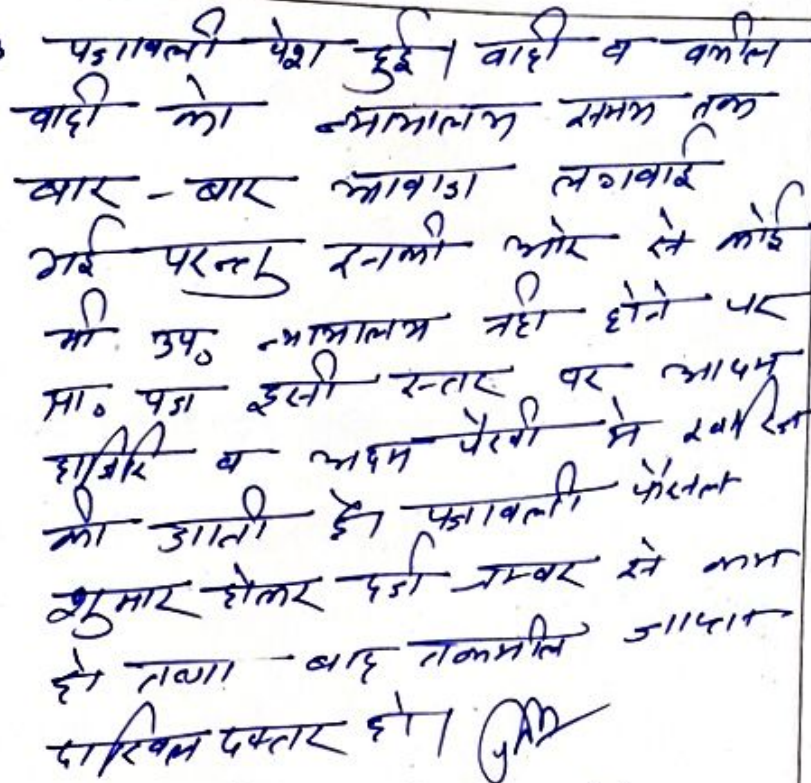 पत्रावली पेश हुई। वादी व वकील
वादी को न्यायालय समय तक
बार - बार आवाज लगवाई
गई परन्तु इनकी ओर से कोई
भी उप० न्यायालय नही होने पर
प्रा० पत्र इसी स्तर पर अदम
हाजिरि व अदम पैरवी मे खारिज
की जाती है। पत्रावली फैसल
शुमार होकर दर्ज नम्बर से कम
हो तथा बाद तकमील जाप्ता
दाखिल दफ्तर हो।